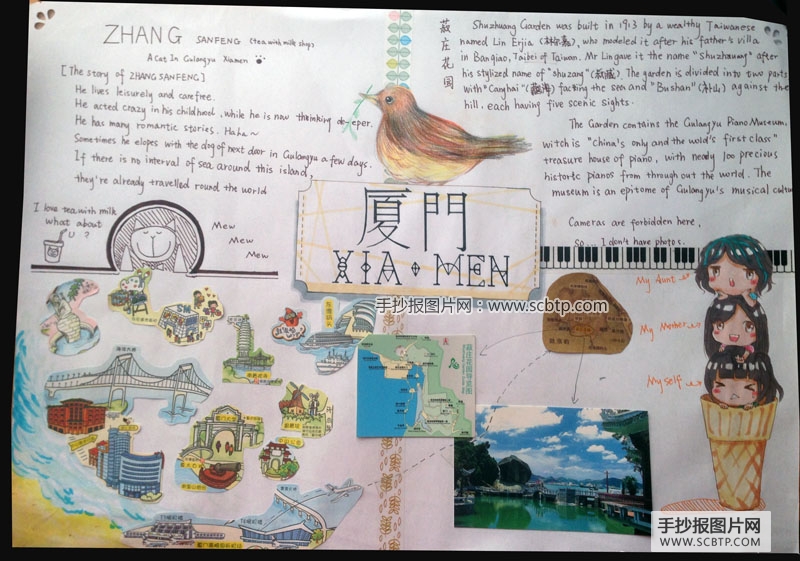 ZHANG SANFENG (tea with milk shop)
A Cat In Gulangyu Xiamen
[The story of ZHANG SANFENG]
He lives leisurely and carefree.
He acted crazy in his childhood, while he is now thinking deeper.
He has many romantic stories. Haha~
Sometimes he elopes with the dog of next door in Gulangyu a few days.
If there is no interval of sea around this island,
they're already travelled round the world
I love tea with milk
what about
U ?
Mew
Mew
Mew
菽庄花园
Shuzhuang Garden was built in 1913 by a wealthy Taiwanese
named Lin Erjia (林尔嘉), who modeled it after his father's villa
in Banqiao, Taibei of Taiwan. Mr Lin gave it the name "Shuzhuang" after
his stylized name of "shuzang" (叔臧). The garden is divided into two parts
with "Canghai" (藏海) facing the sea and "Bushan" (补山) against the
hill, each having five scenic sights.
The Garden contains the Gulangyu Piano Museum.
witch is "china's only and the wold's first class"
treasure house of piano, with nearly 100 precious
historic pianos from through out the world. The
museum is an epitome of Gulangyu's musical cultu
Cameras are forbidden here,
So... I don't have photos.
厦門
XIA·MEN
手抄报图片网：www.scbtp.com
My Aunt
My Mother
Myself
菽庄花园导览图
手抄报图片网
WWW.SCBTP.COM